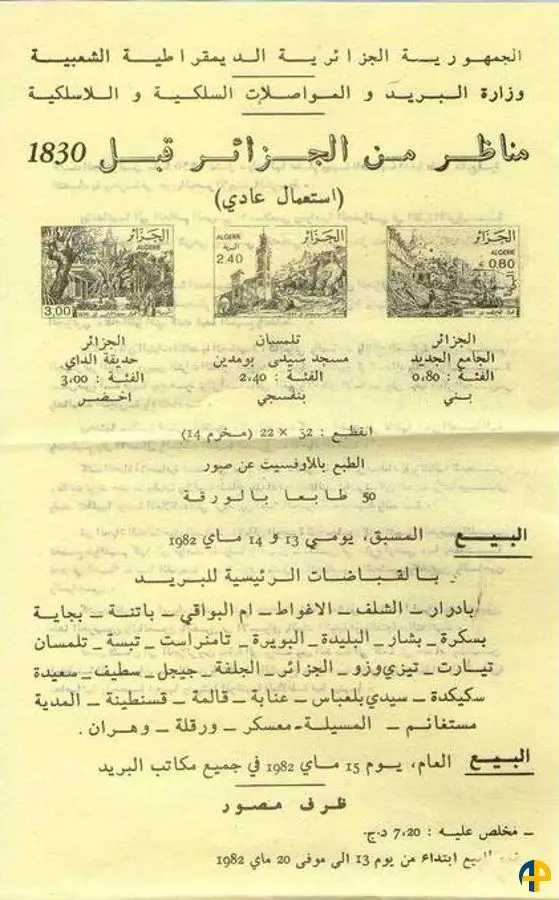 الجمهورية الجزائرية الديمقراطية الشعبية
وزارة البريد و المواصلات السلكية و اللاسلكية
مناظر من الجزائر قبل 1830
(استعمال عادي)
الجزائر
ALGERIE
3,00
الجزائر
ALGERIE
2.40
الجزائر
ALGERIE
0,80
الجزائر
الجامع الجديد
الفئة : 0،80
بني
تلمسان
مسجد سيدي بومدين
الفئة : 2،40
بنفسجي
الجزائر
حديقة الداي
الفئة : 3،00
اخضر
القطع : 32 × 22 (مخرم 14)
الطبع بالأوفسيت عن صور
50 طابعا بالورقة
البيع المسبق، يومي 13 و 14 ماي 1982
بالقباضات الرئيسية للبريد
بادرار – الشلف – الاغواط – ام البواقي – باتنة – بجاية
بسكرة – بشار – البليدة – البويرة – تامنراست – تبسة – تلمسان
تيارت – تيزي وزو – الجزائر – الجلفة – جيجل – سطيف – سعيدة
سكيكدة – سيدي بلعباس – عنابة – قالمة – قسنطينة – المدية
مستغانم – المسيلة – معسكر – ورقلة – وهران .
البيع العام، يوم 15 ماي 1982 في جميع مكاتب البريد
ظرف مصور
– مخلص عليه : 7،20 د.ج.
البيع ابتداء من يوم 13 الى موفى 20 ماي 1982